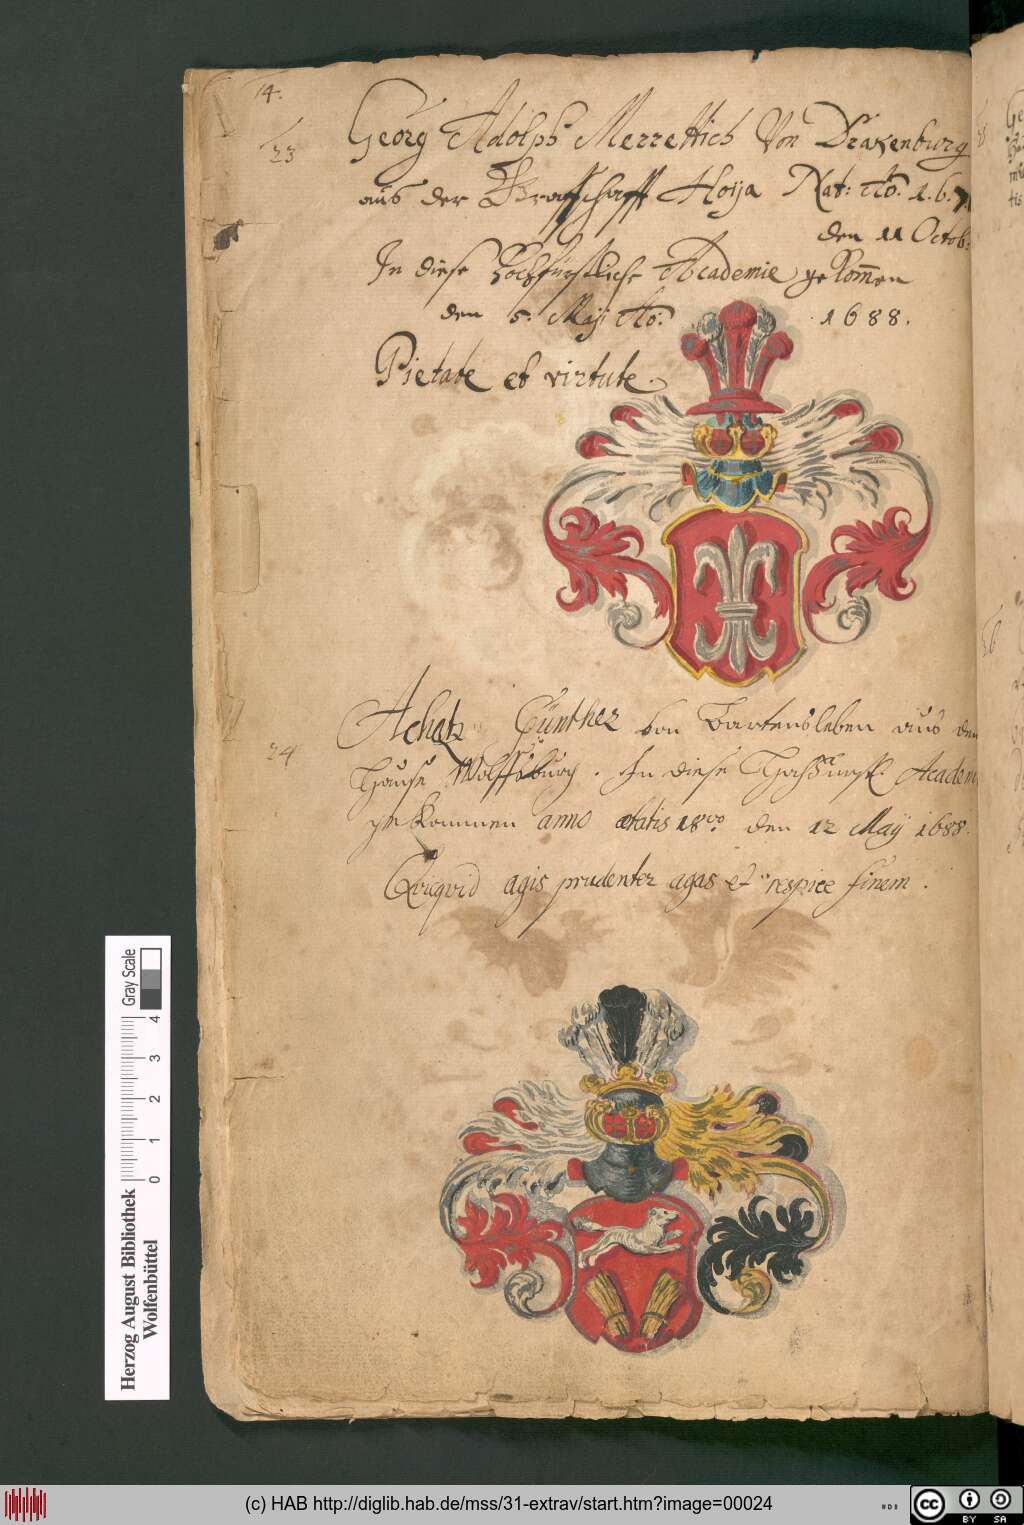 14.
23
Georg Adolph Merrettich Von Drakenburg
aus der Graffschafft Hoija Nat: Ao. 1.6.7
den 11 Octob:
In diese Hochfürstliche Academie gekom̄en
den 5. Maji Ao: 1688.
Pietate et virtute.
24
Achatz Günther von Bartensleben aus dem
Hause Wolffsburg. In diese Academ
gekommen anno ætatis 18vo. den 12 Maÿ 1688.
Quiqvid agis prudenter agas et respice finem.
Herzog August Bibliothek
Wolfenbüttel
0 1 2 3 4
Gray Scale
(c) HAB http://diglib.hab.de/mss/31-extrav/start.htm?image=00024
cc BY SA